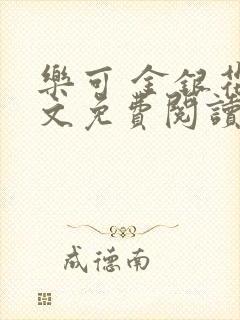 樂可 金銀花
文免費閱讀
成德南